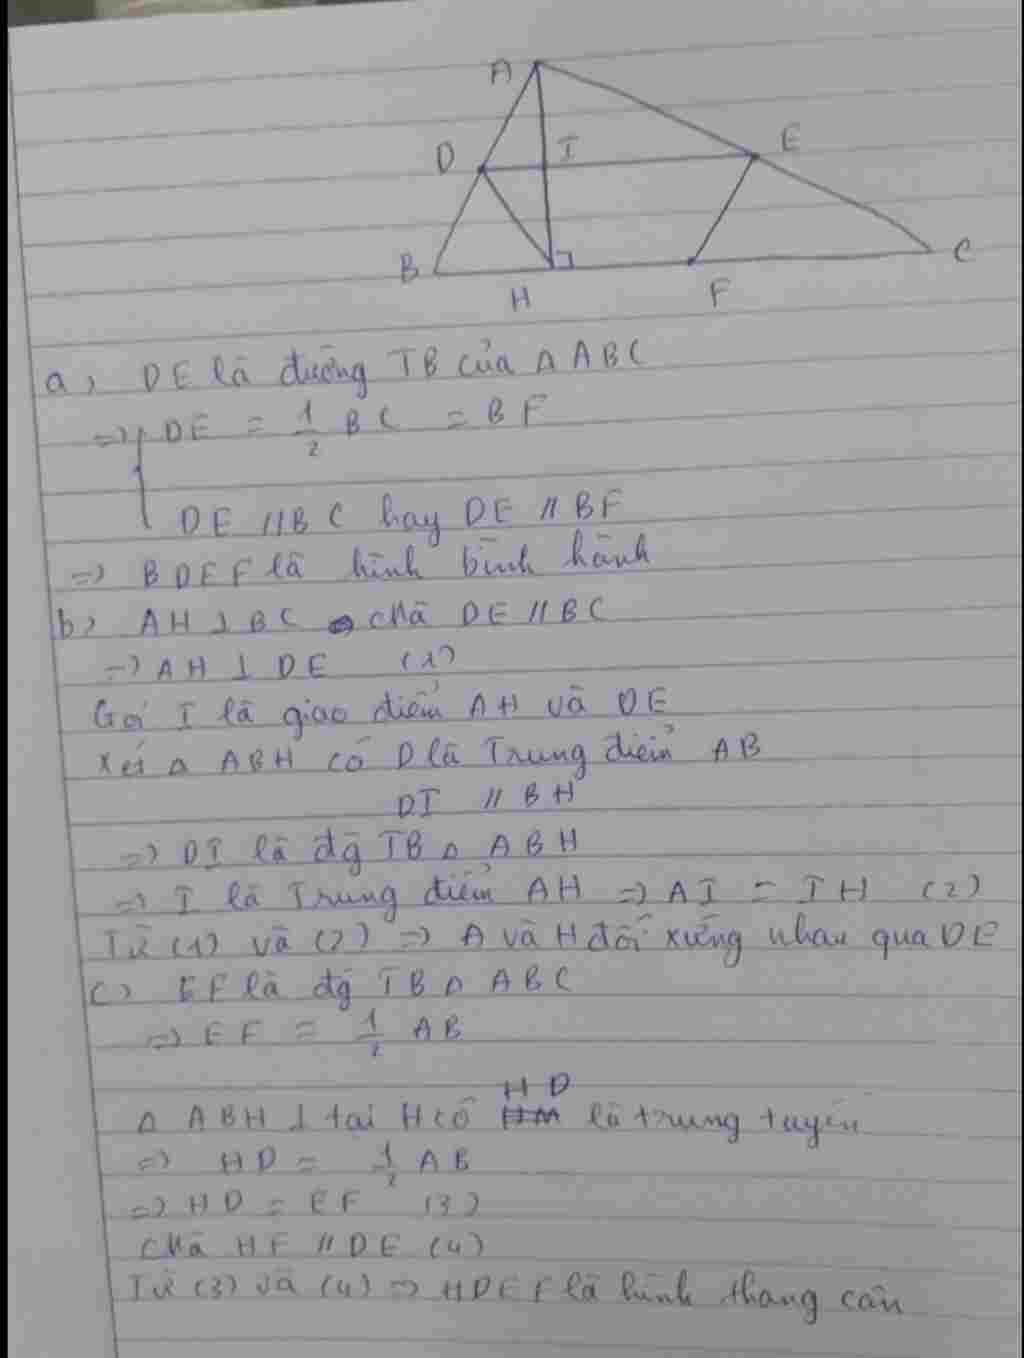 A
D I E
B H F C
a, DE là đường TB của Δ ABC
=> DE = 1/2 BC = BF
DE // BC hay DE // BF
=> BDEF là hình bình hành
b, AH ⊥ BC mà DE // BC
=> AH ⊥ DE (1)
Gọi I là giao điểm AH và DE
Xét Δ ABH có D là Trung điểm AB
DI // BH
=> DI là đg TB Δ ABH
=> I là Trung điểm AH => AI = IH (2)
Từ (1) và (2) => A và H đối xứng nhau qua DE
c, EF là đg TB Δ ABC
=> EF = 1/2 AB
Δ ABH ⊥ tại H có HD là trung tuyến
=> HD = 1/2 AB
=> HD = EF (3)
Mà HF // DE (4)
Từ (3) và (4) => HDEF là hình thang cân